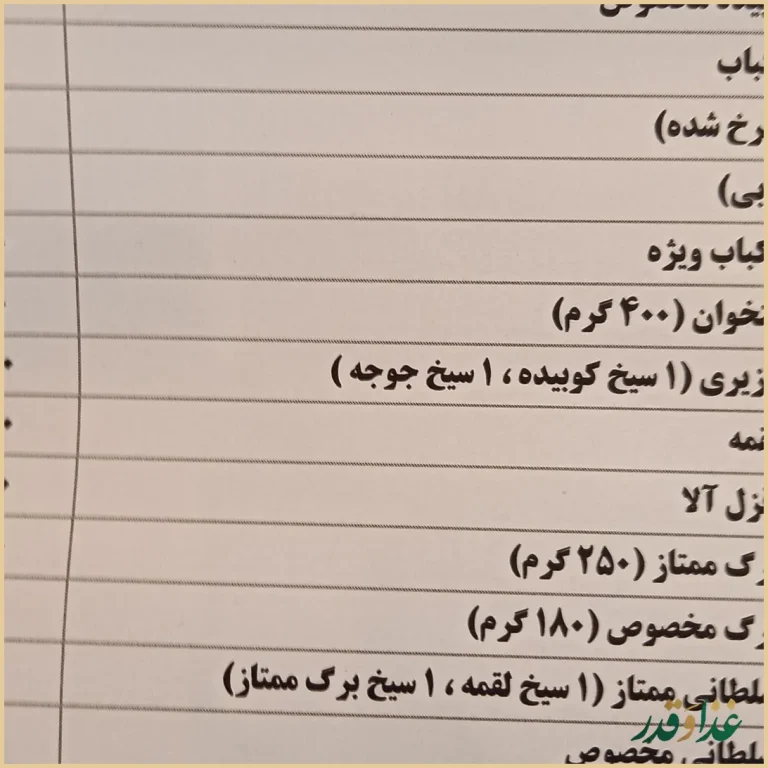 بیده مخصوص
کباب
رخ شده)
بی)
کباب ویژه
نخوان (۴۰۰ گرم)
زیری (۱ سیخ کوبیده ، ۱ سیخ جوجه )
قمه
قزل آلا
رگ ممتاز (۲۵۰ گرم)
رگ مخصوص (۱۸۰ گرم)
لطانی ممتاز (۱ سیخ لقمه ، ۱ سیخ برگ ممتاز)
لطانی مخصوص
غذا و قدر